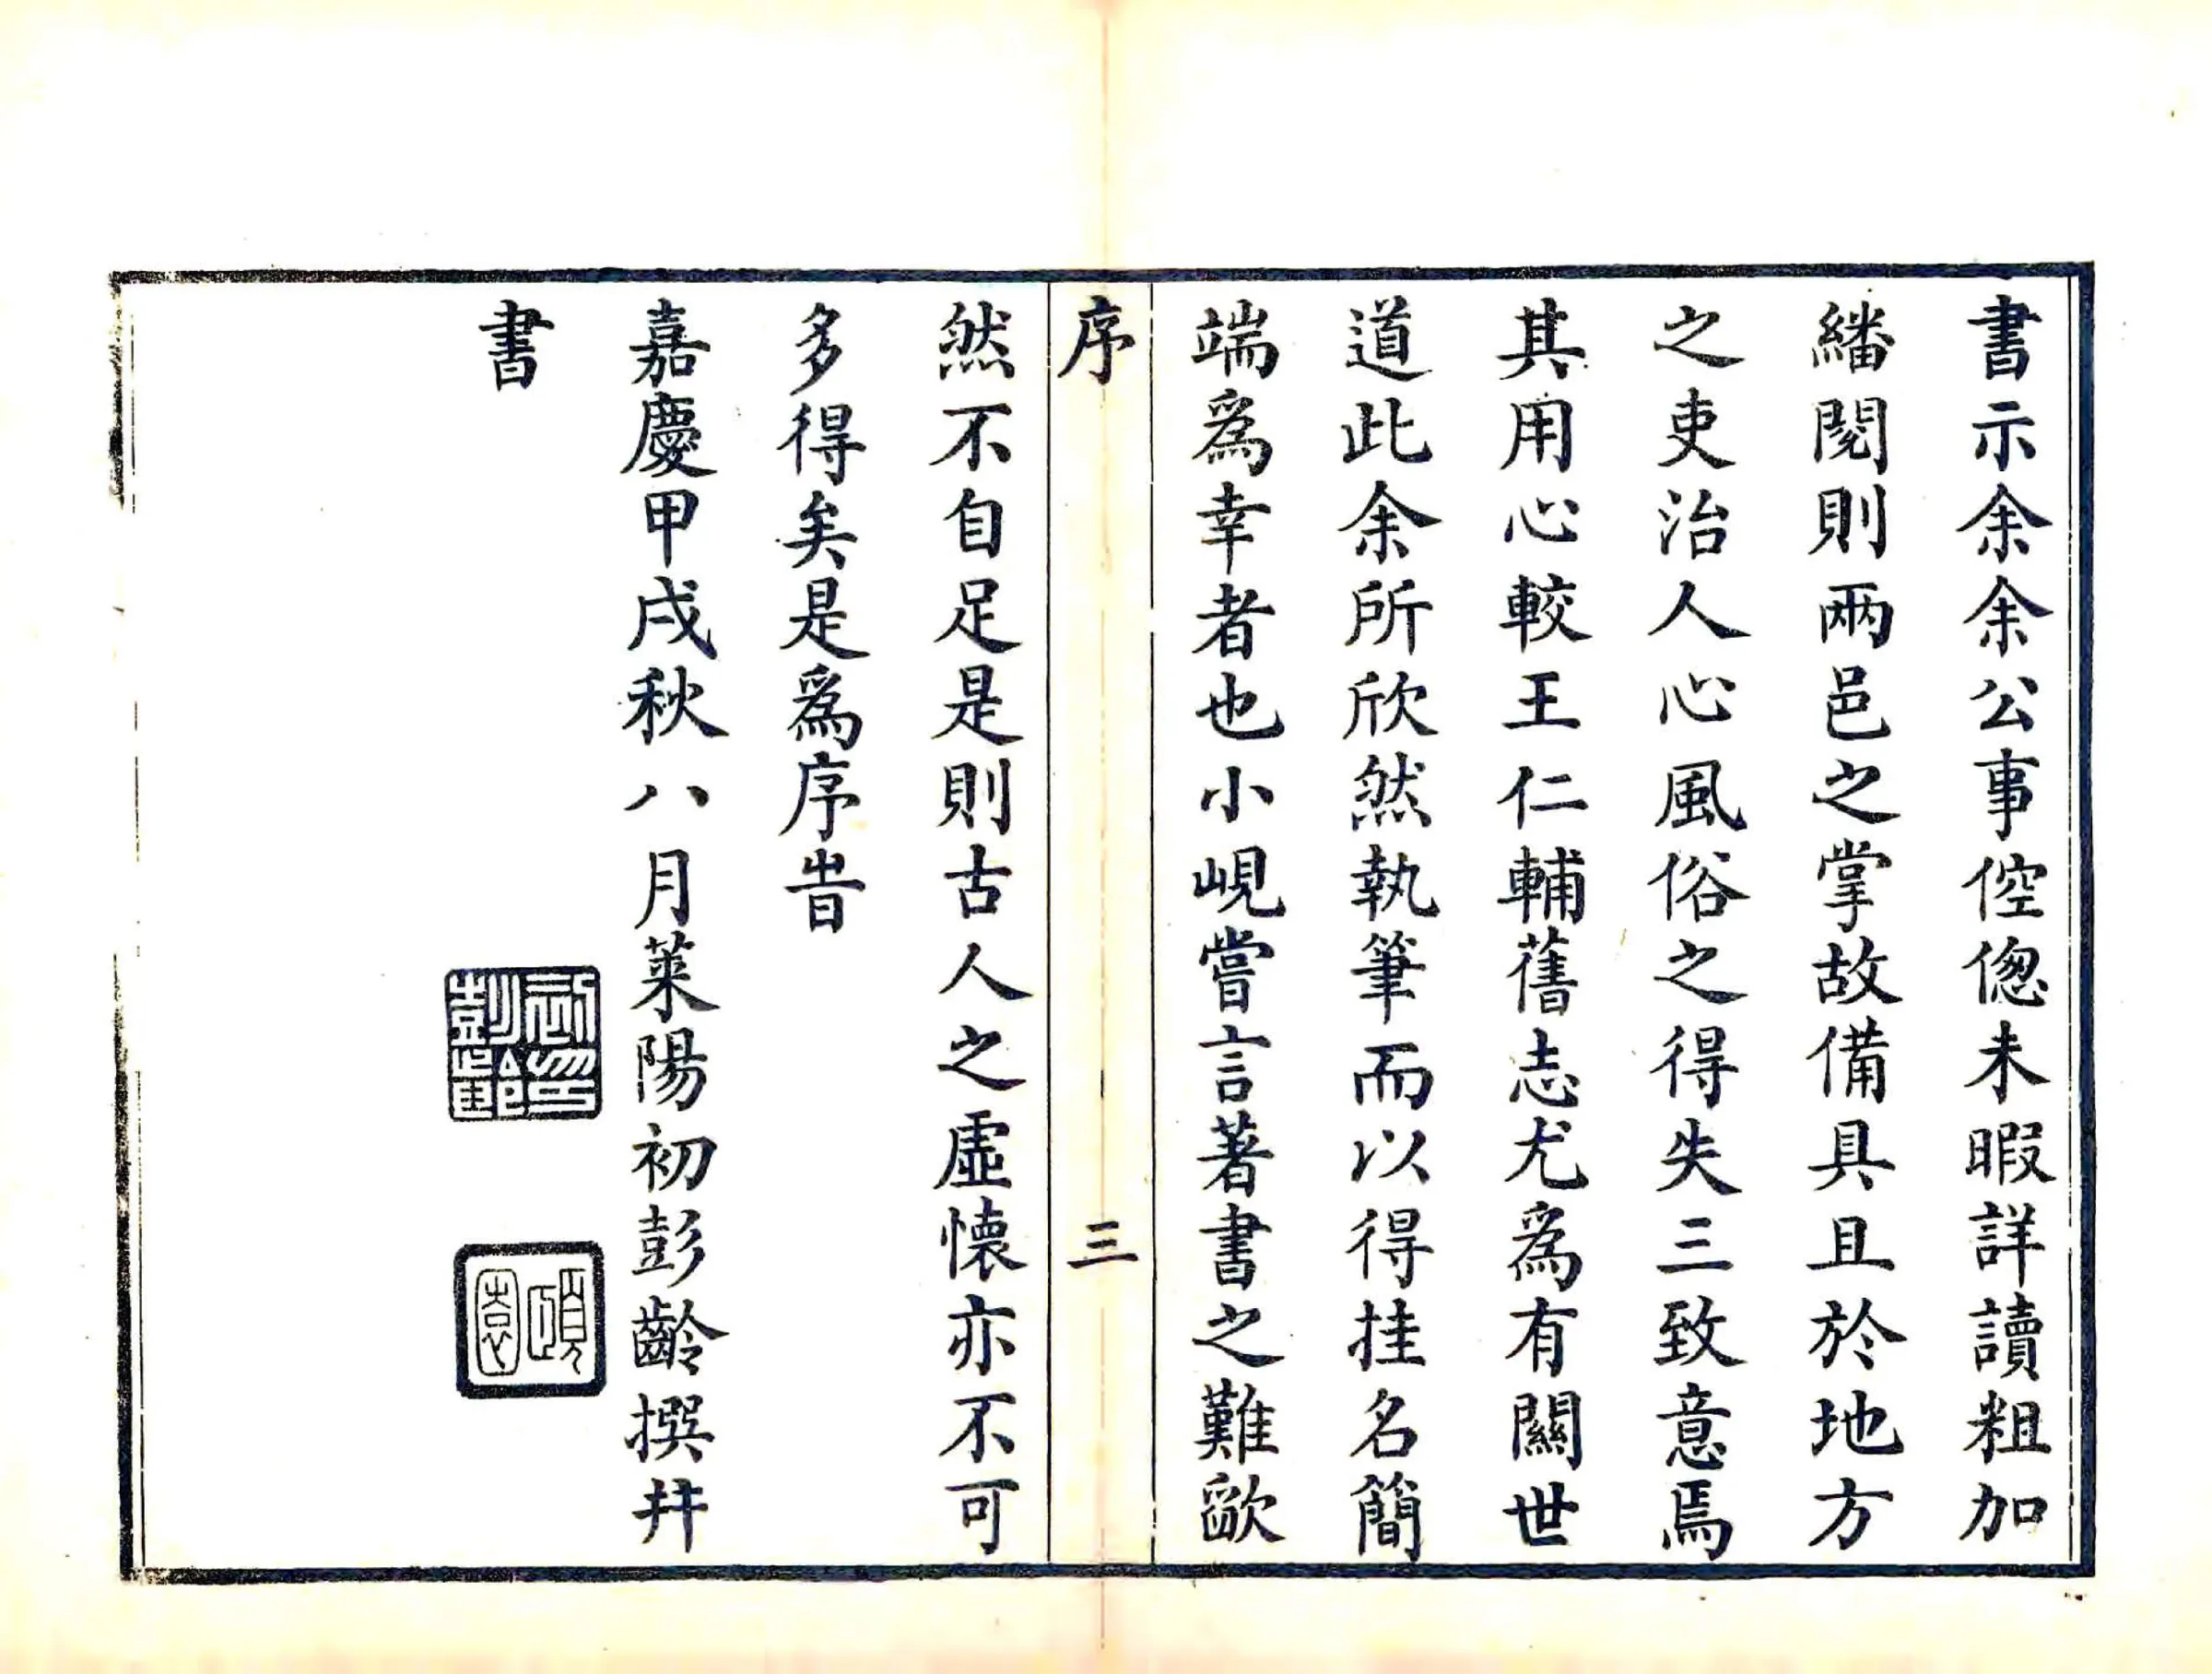 書示余余公事倥傯未暇詳讀粗加
繙閱則兩邑之掌故備具且於地方
之吏治人心風俗之得失三致意焉
其用心較王仁輔舊志尤爲有關世
道此余所欣然執筆而以得挂名簡
端爲幸者也小峴嘗言著書之難歐
序
三
然不自足是則古人之虛懷亦不可
多得矣是爲序旹
嘉慶甲戌秋八月萊陽初彭齡撰幷
書
頤園